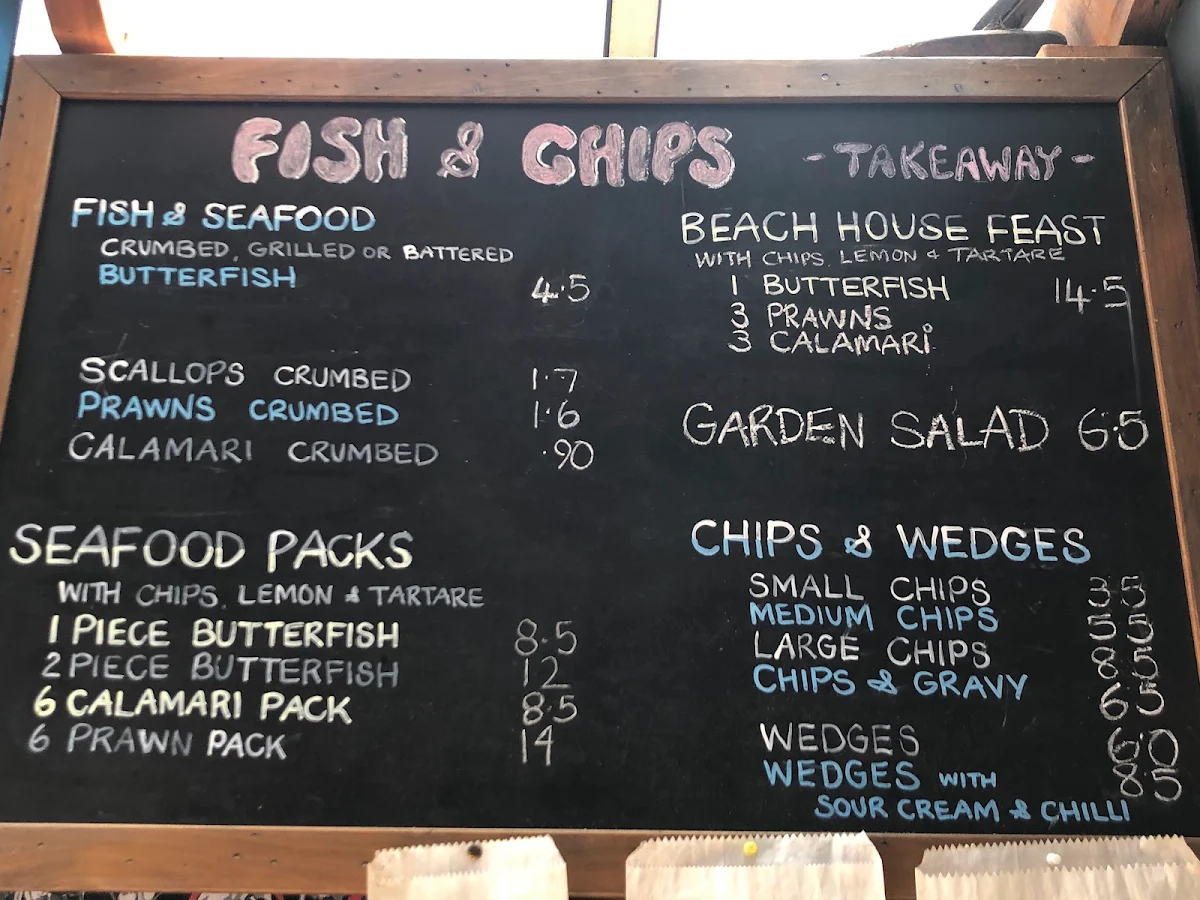 FISH & CHIPS - TAKEAWAY -
FISH & SEAFOOD
CRUMBED, GRILLED OR BATTERED
BUTTERFISH 4.5
SCALLOPS CRUMBED 1.7
PRAWNS CRUMBED 1.6
CALAMARI CRUMBED .90
SEAFOOD PACKS
WITH CHIPS, LEMON & TARTARE
1 PIECE BUTTERFISH 8.5
2 PIECE BUTTERFISH 12
6 CALAMARI PACK 8.5
6 PRAWN PACK 14
BEACH HOUSE FEAST
WITH CHIPS, LEMON & TARTARE
1 BUTTERFISH 14.5
3 PRAWNS
3 CALAMARI
GARDEN SALAD 6.5
CHIPS & WEDGES
SMALL CHIPS 3.5
MEDIUM CHIPS 5.5
LARGE CHIPS 8.5
CHIPS & GRAVY 6.5
WEDGES 6.0
WEDGES WITH 8.5
SOUR CREAM & CHILLI